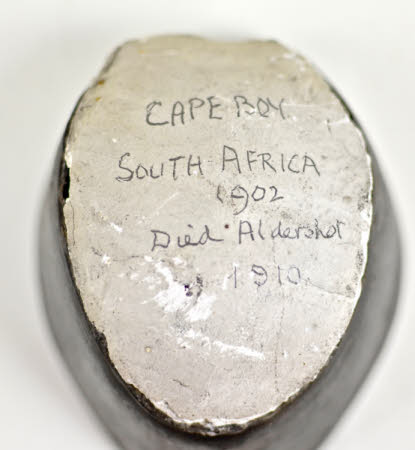 CAPE BOY.
SOUTH AFRICA
1902
Died Aldershot
1910